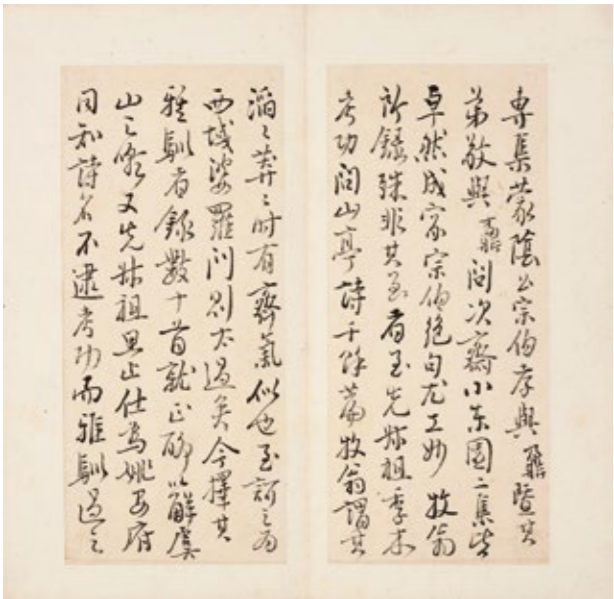 專集蒙陰公宗伯孝與鼐暨其
弟敬與鼒問次齋小東園二集皆
卓然成家宗伯絕句尤工妙牧翁
所錄殊非其至者至先叔祖季木
考功問山亭詩千餘篇牧翁謂其
滔〻莽〻時有齊氣似也至訶之為
西域婆羅門則太過矣今擇其
雅馴者錄數十首就正聊以解虞
山之嘲又先叔祖思止仕為姚安府
同知詩名不逮考功而雅馴過之